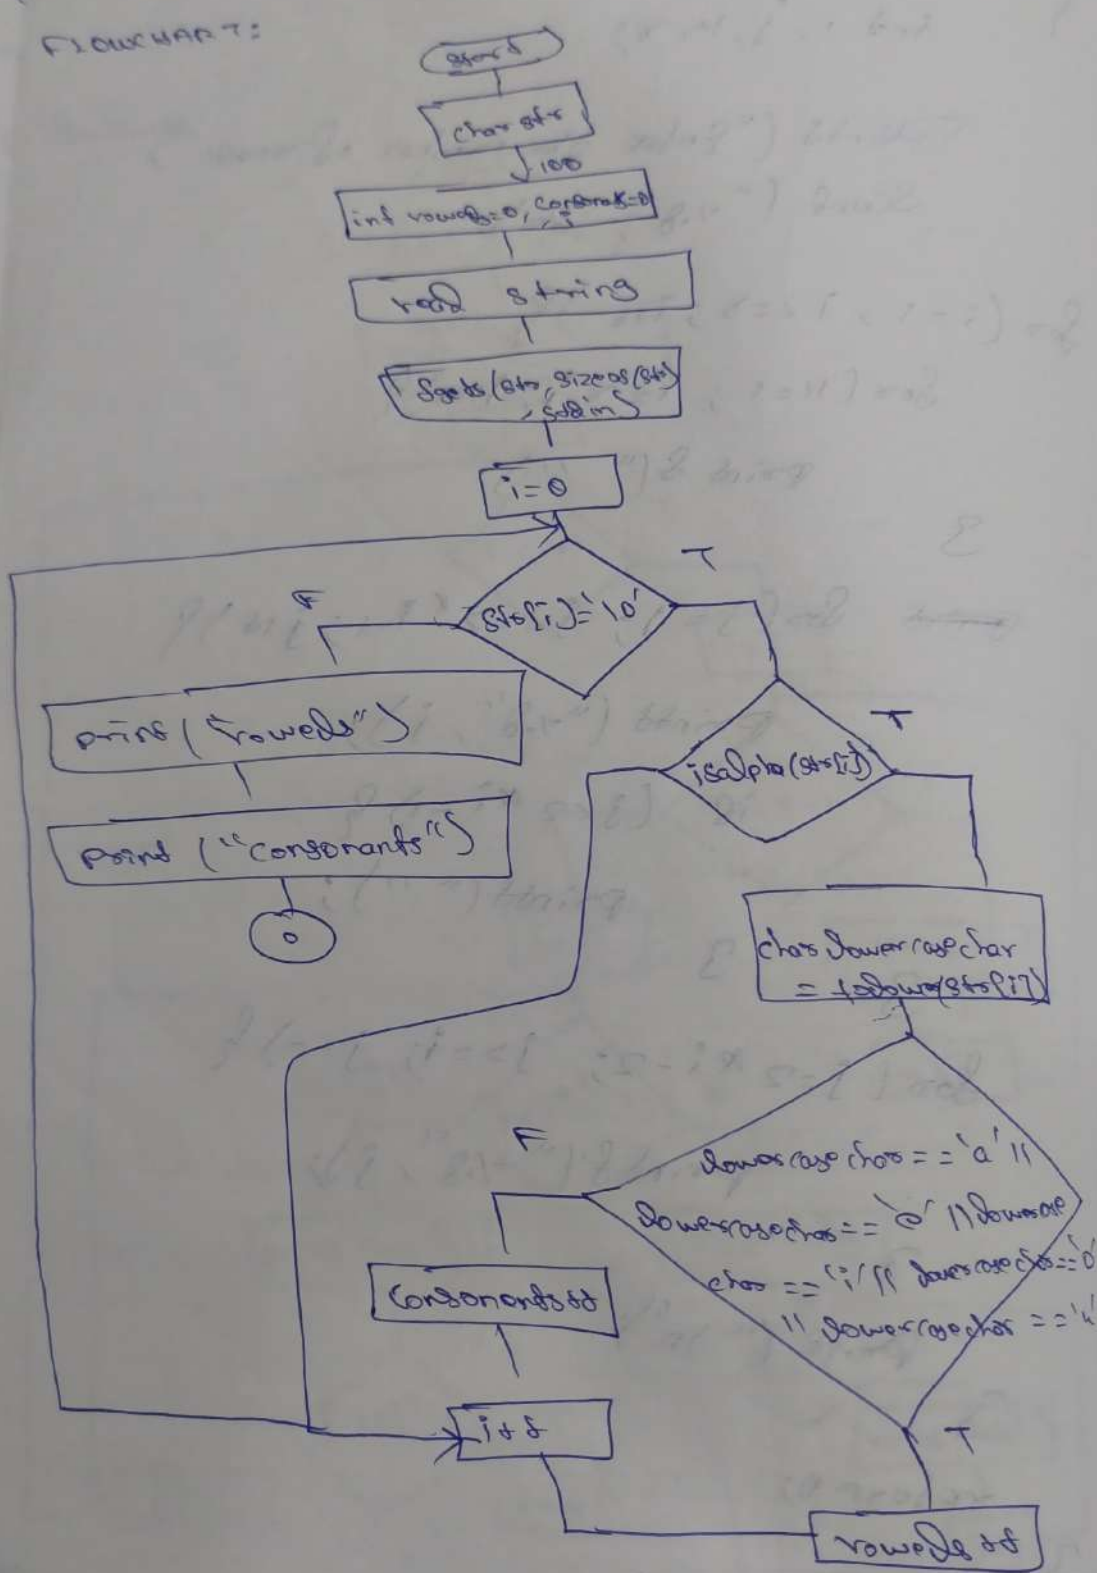 FLOWCHART:
start
char str
100
int vowels=0, consonants=0
, i
read string
fgets(str, sizeof(str)
, stdin)
i=0
T
F
str[i]='\0'
print("vowels")
T
isalpha(str[i])
print ("consonants")
0
char lowercasechar
= tolower(str[i])
F
lowercasechar=='a' ||
lowercasechar=='e' || lowercase
char=='i' || lowercasechar=='o'
|| lowercasechar=='u'
consonants++
i++
T
vowels++